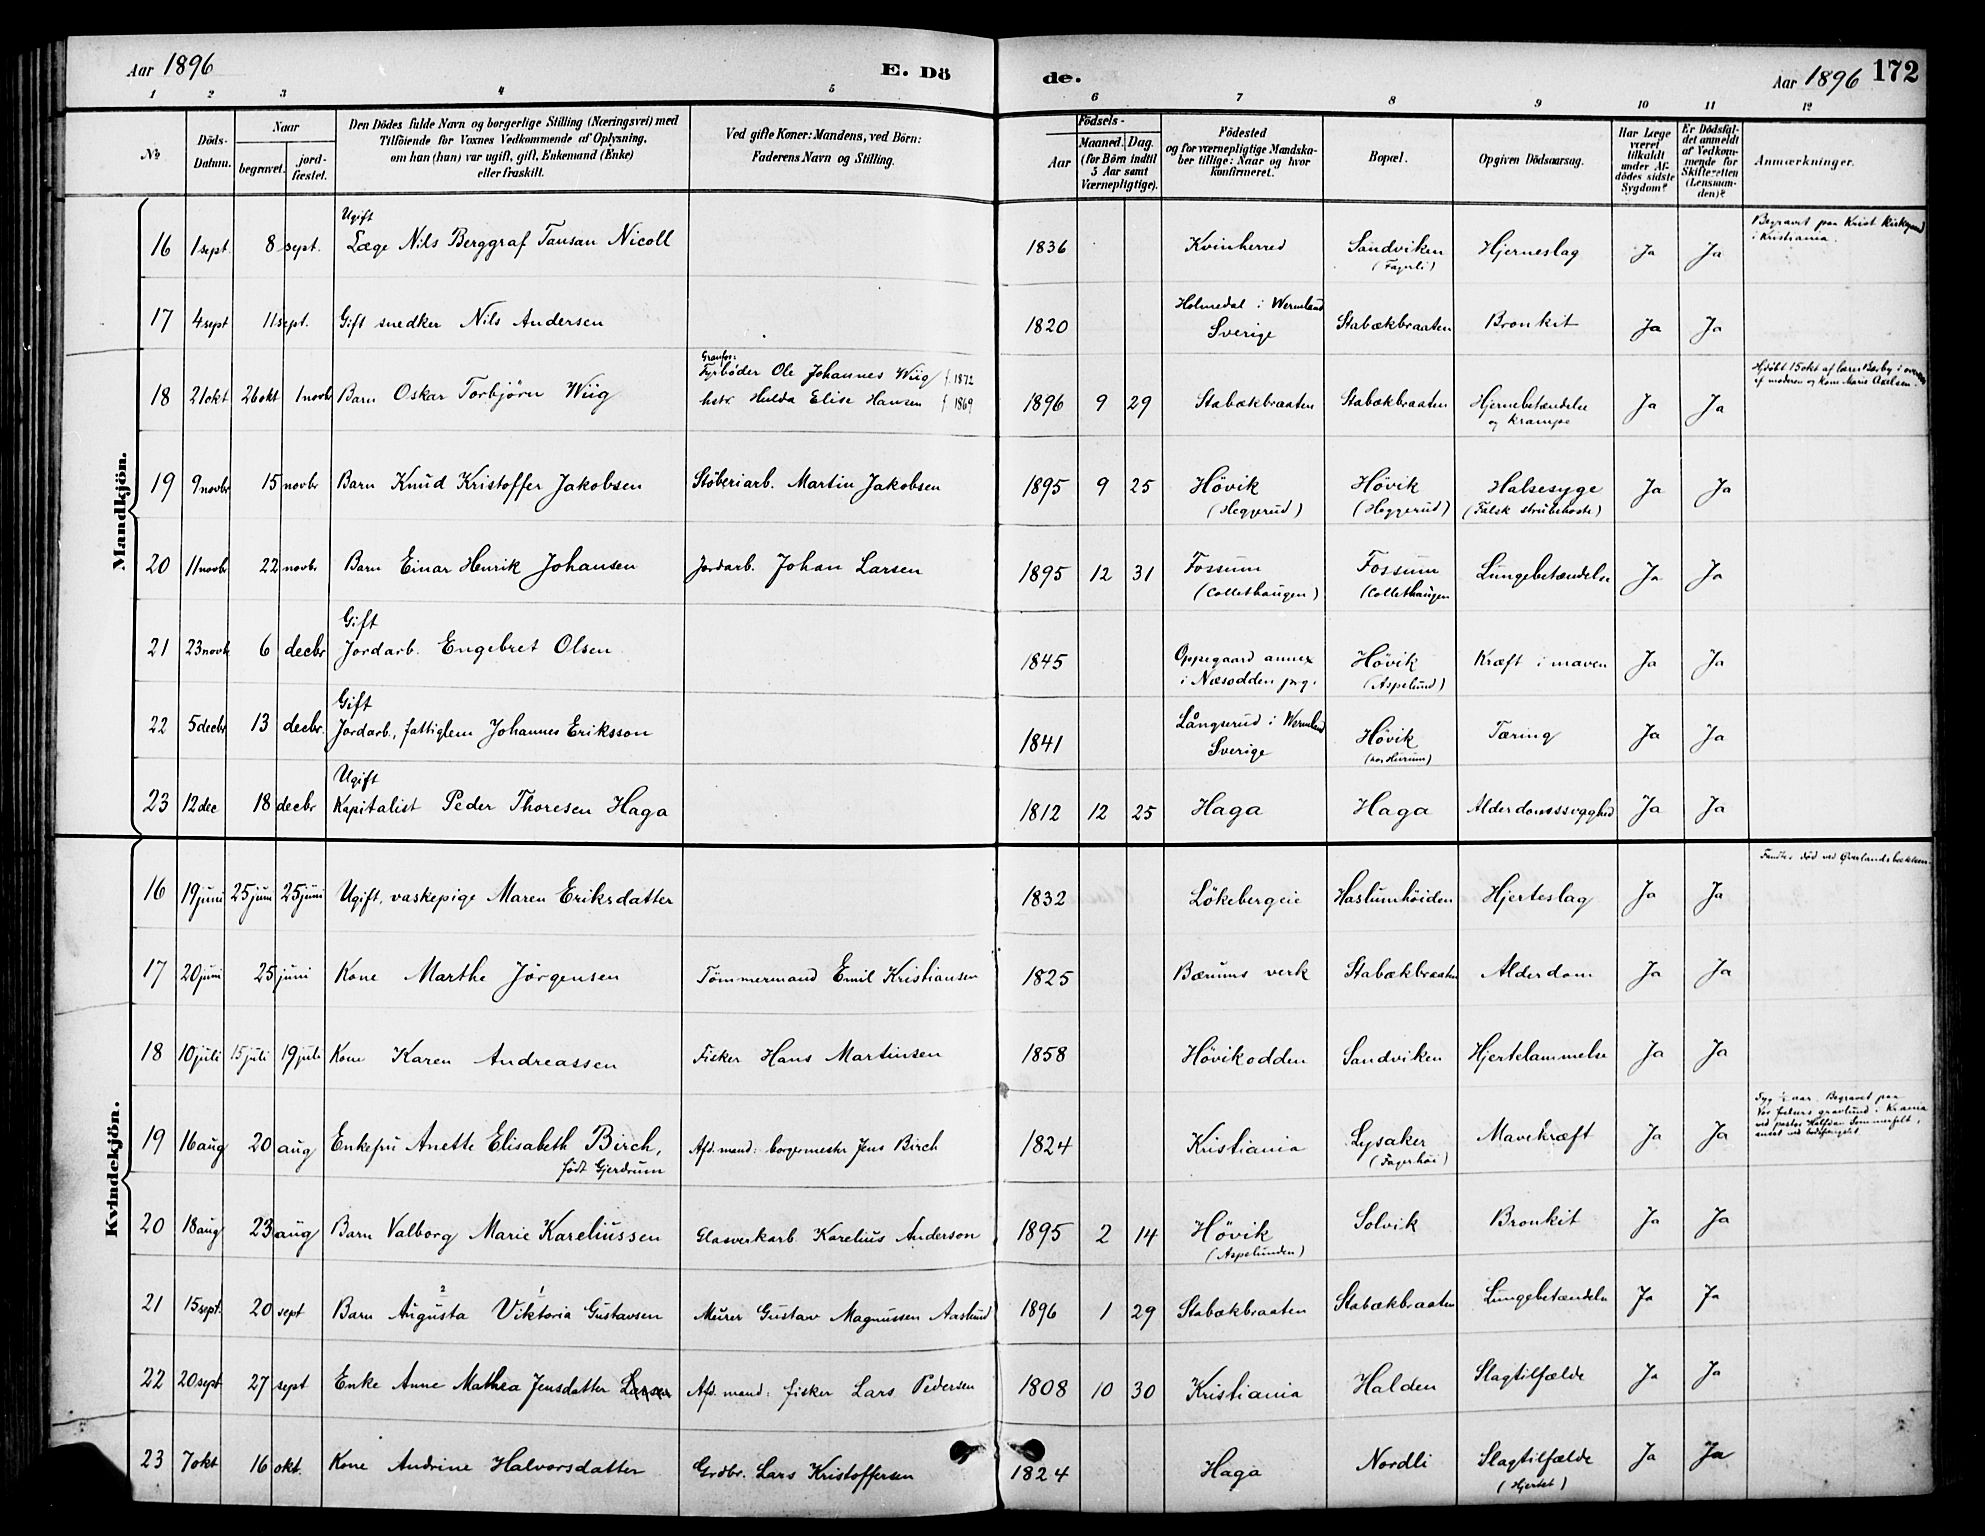 Aar 1896 E. Dö de. Aar 1896 172
1 2 3 4 5 6 7 8 9 10 11 12
No
Döds-Datum.
Naar
begravet.
jord-fæstet.
Den Dödes fulde Navn og borgerlige Stilling (Næringsvei) med
Tilföiende för Voxnes Vedkommende af Oplysning,
om han (hun) var ugift, gift, Enkemand (Enke)
eller fraskilt.
Ved gifte Koner: Mandens, ved Börn:
Faderens Navn og Stilling.
Födsels-
Aar
Maaned. Dag.
(for Börn indtil
5 Aar samt
Værnepligtige).
Födested
og for værnepligtige Mandska-
ber tillige: Naar og hvor
konfirmeret.
Bopæl.
Opgiven Dödsaarsag.
Har Læge
været
tilkaldt
under Af-
dödes sidste
Sygdom?
Er Dödsfal-
det anmeldt
af Vedkom-
mende for
Skifteretten
(Lensman-
den)?
Anmærkninger.
Mandkjön.
Ugift
16 1 sept. 8 sept. Læge Nils Berggraf Tausan Nicoll 1836 Kvinherred Sandviken (Fagerli) Hjerneslag Ja Ja Begravet paa Krist Kirkegaard i Kristiania.
17 4 sept 11 sept. Gift snedker Nils Andersen 1820 Holmedal i Wermland Sverige Stabækbraaten Bronkit Ja Ja
18 21 okt 26 okt 1 novbr Barn Oskar Torbjörn Wiig Granfos: Fyrbøder Ole Johannes Wiig f. 1872 hstr Hulda Elise Hansen f 1869 1896 9 29 Stabækbraaten Stabækbraaten Hjernebetændelse og krampe Ja Ja Hjdøbt 15 okt af moderen og kone Marie Axelsen.
19 9 novbr 15 novbr Barn Knud Kristoffer Jakobsen Støberiarb. Martin Jakobsen 1895 9 25 Hövik (Heggerud) Hövik (Heggerud) Halsesyge (Falsk strubehoste) Ja Ja
20 11 novbr 22 novbr Barn Einar Henrik Johansen Jordarb. Johan Larsen 1895 12 31 Fossum (Colletshaugen) Fossum (Colletshaugen Lungebetændelse Ja Ja
Gift
21 23 novb 6 decbr Jordarb. Engebret Olsen 1845 Oppegaard annex i Næsodden prg. Hövik (Aspelund) Kræft i maven Ja Ja
Gift
22 5 decbr 13 decbr. Jordarb., fattiglem Johannes Eriksson 1841 Långserud i Wermland Sverige Hövik Tæring Ja Ja
Ugift
23 12 dec 18 decbr Kapitalist Peder Thoresen Haga 1812 12 25 Haga Haga Alderdomssvaghed Ja Ja
Kvindekjön.
16 19 juni 25 juni 25 juni Ugift, vaskepige Maren Eriksdatter 1832 Lökebergeie Haslumhöiden Hjerteslag Ja Ja Fandtes död ved Øverlandsbækken.
17 20 juni 25 juni Kone Marthe Jörgensen Tömmermand Emil Kristiansen 1825 Bærums verk Stabækbraaten Alderdom Ja Ja
18 10 juli 15 juli 19 juli Kone Karen Andreassen Fisker Hans Martinsen 1858 Hövikodden Sandviken Hjertelammelse Ja Ja
19 16 aug 20 aug Enkefru Anette Elisabeth Birch, födt Gjerdrum Afd. mand: borgermester Jens Birch 1824 Kristiania Lysaker (Fagerhöi) Mavekræft Ja Ja Syg ½ aar. Begravet paa Vor frelsers gravlund i Krania ved pastor Halfdan Sommerfelt,
20 18 aug 23 aug Barn Valborg Marie Kareliussen Glasverkarb. Karelius Anderson 1895 2 14 Hövik (Aspelunden) Solvik Bronkit Ja Ja
2 1
21 15 sept. 20 sept Barn Augusta Viktoria Gustavsen Murer Gustav Magnussen Aaslund 1896 1 29 Stabækbraaten Stabækbraaten Lungebetændelse Ja Ja
22 20 sept 27 sept Enke Anne Mathea Jensdatter Larsen Afd. mand: fisker Lars Pedersen 1808 10 30 Kristiania Halden Slagtilfælde Ja Ja
23 7 okt 16 okt. Kone Andrine Halvorsdatter Grdbr. Lars Kristoffersen 1824 Haga Nordli Slagtilfælde (Hjertet) Ja Ja